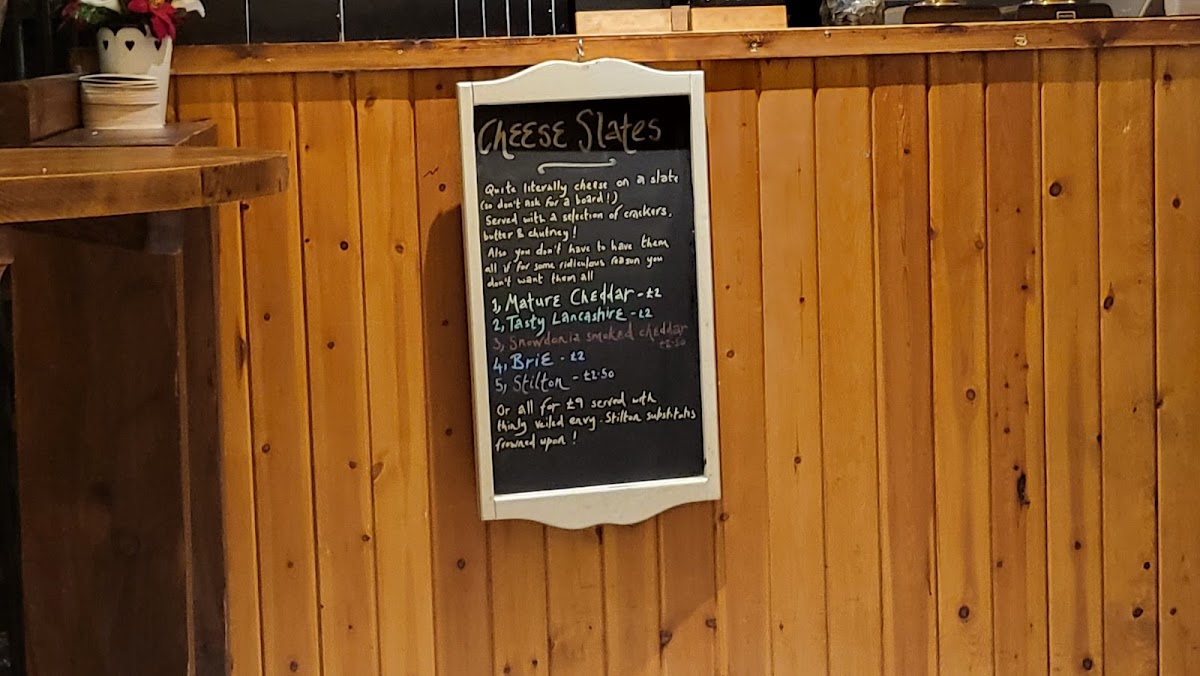 CHEESE Slates
Quite literally cheese on a slate
(so don't ask for a board!)
Served with a selection of crackers,
butter & chutney!
Also you don't have to have them
all if for some ridiculous reason you
don't want them all
1, Mature Cheddar - £2
2, Tasty Lancashire - £2
3, Snowdonia smoked cheddar
£2.50
4, Brie - £2
5, Stilton - £2.50
Or all for £9 served with
thinly veiled envy. Stilton substitutes
frowned upon!